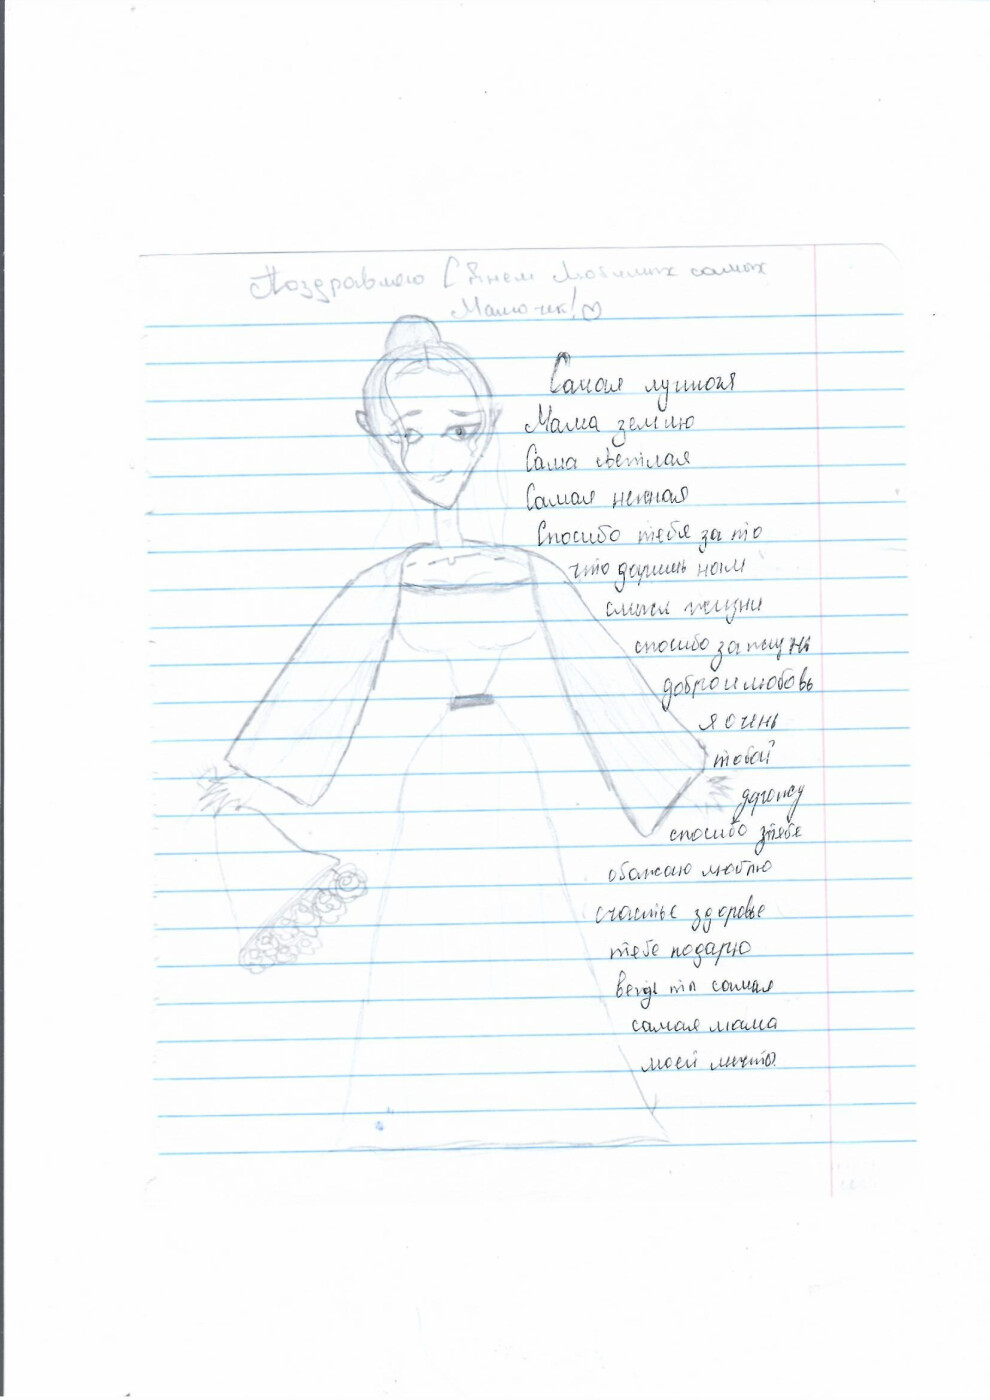 Поздравляю С Днем Любимых самых
Мамочек!
Самая лучшая
Мама землю
Сама светлая
Самая нежная
Спосибо тебя за то
что даришь нам
смысл жизни
спосибо за жизнь
добро и любовь
я очень
тобой
спосибо
обожаю люблю
счастье здоровье
тебе подарю
ведь ты самая
самая мама
моей мечты.